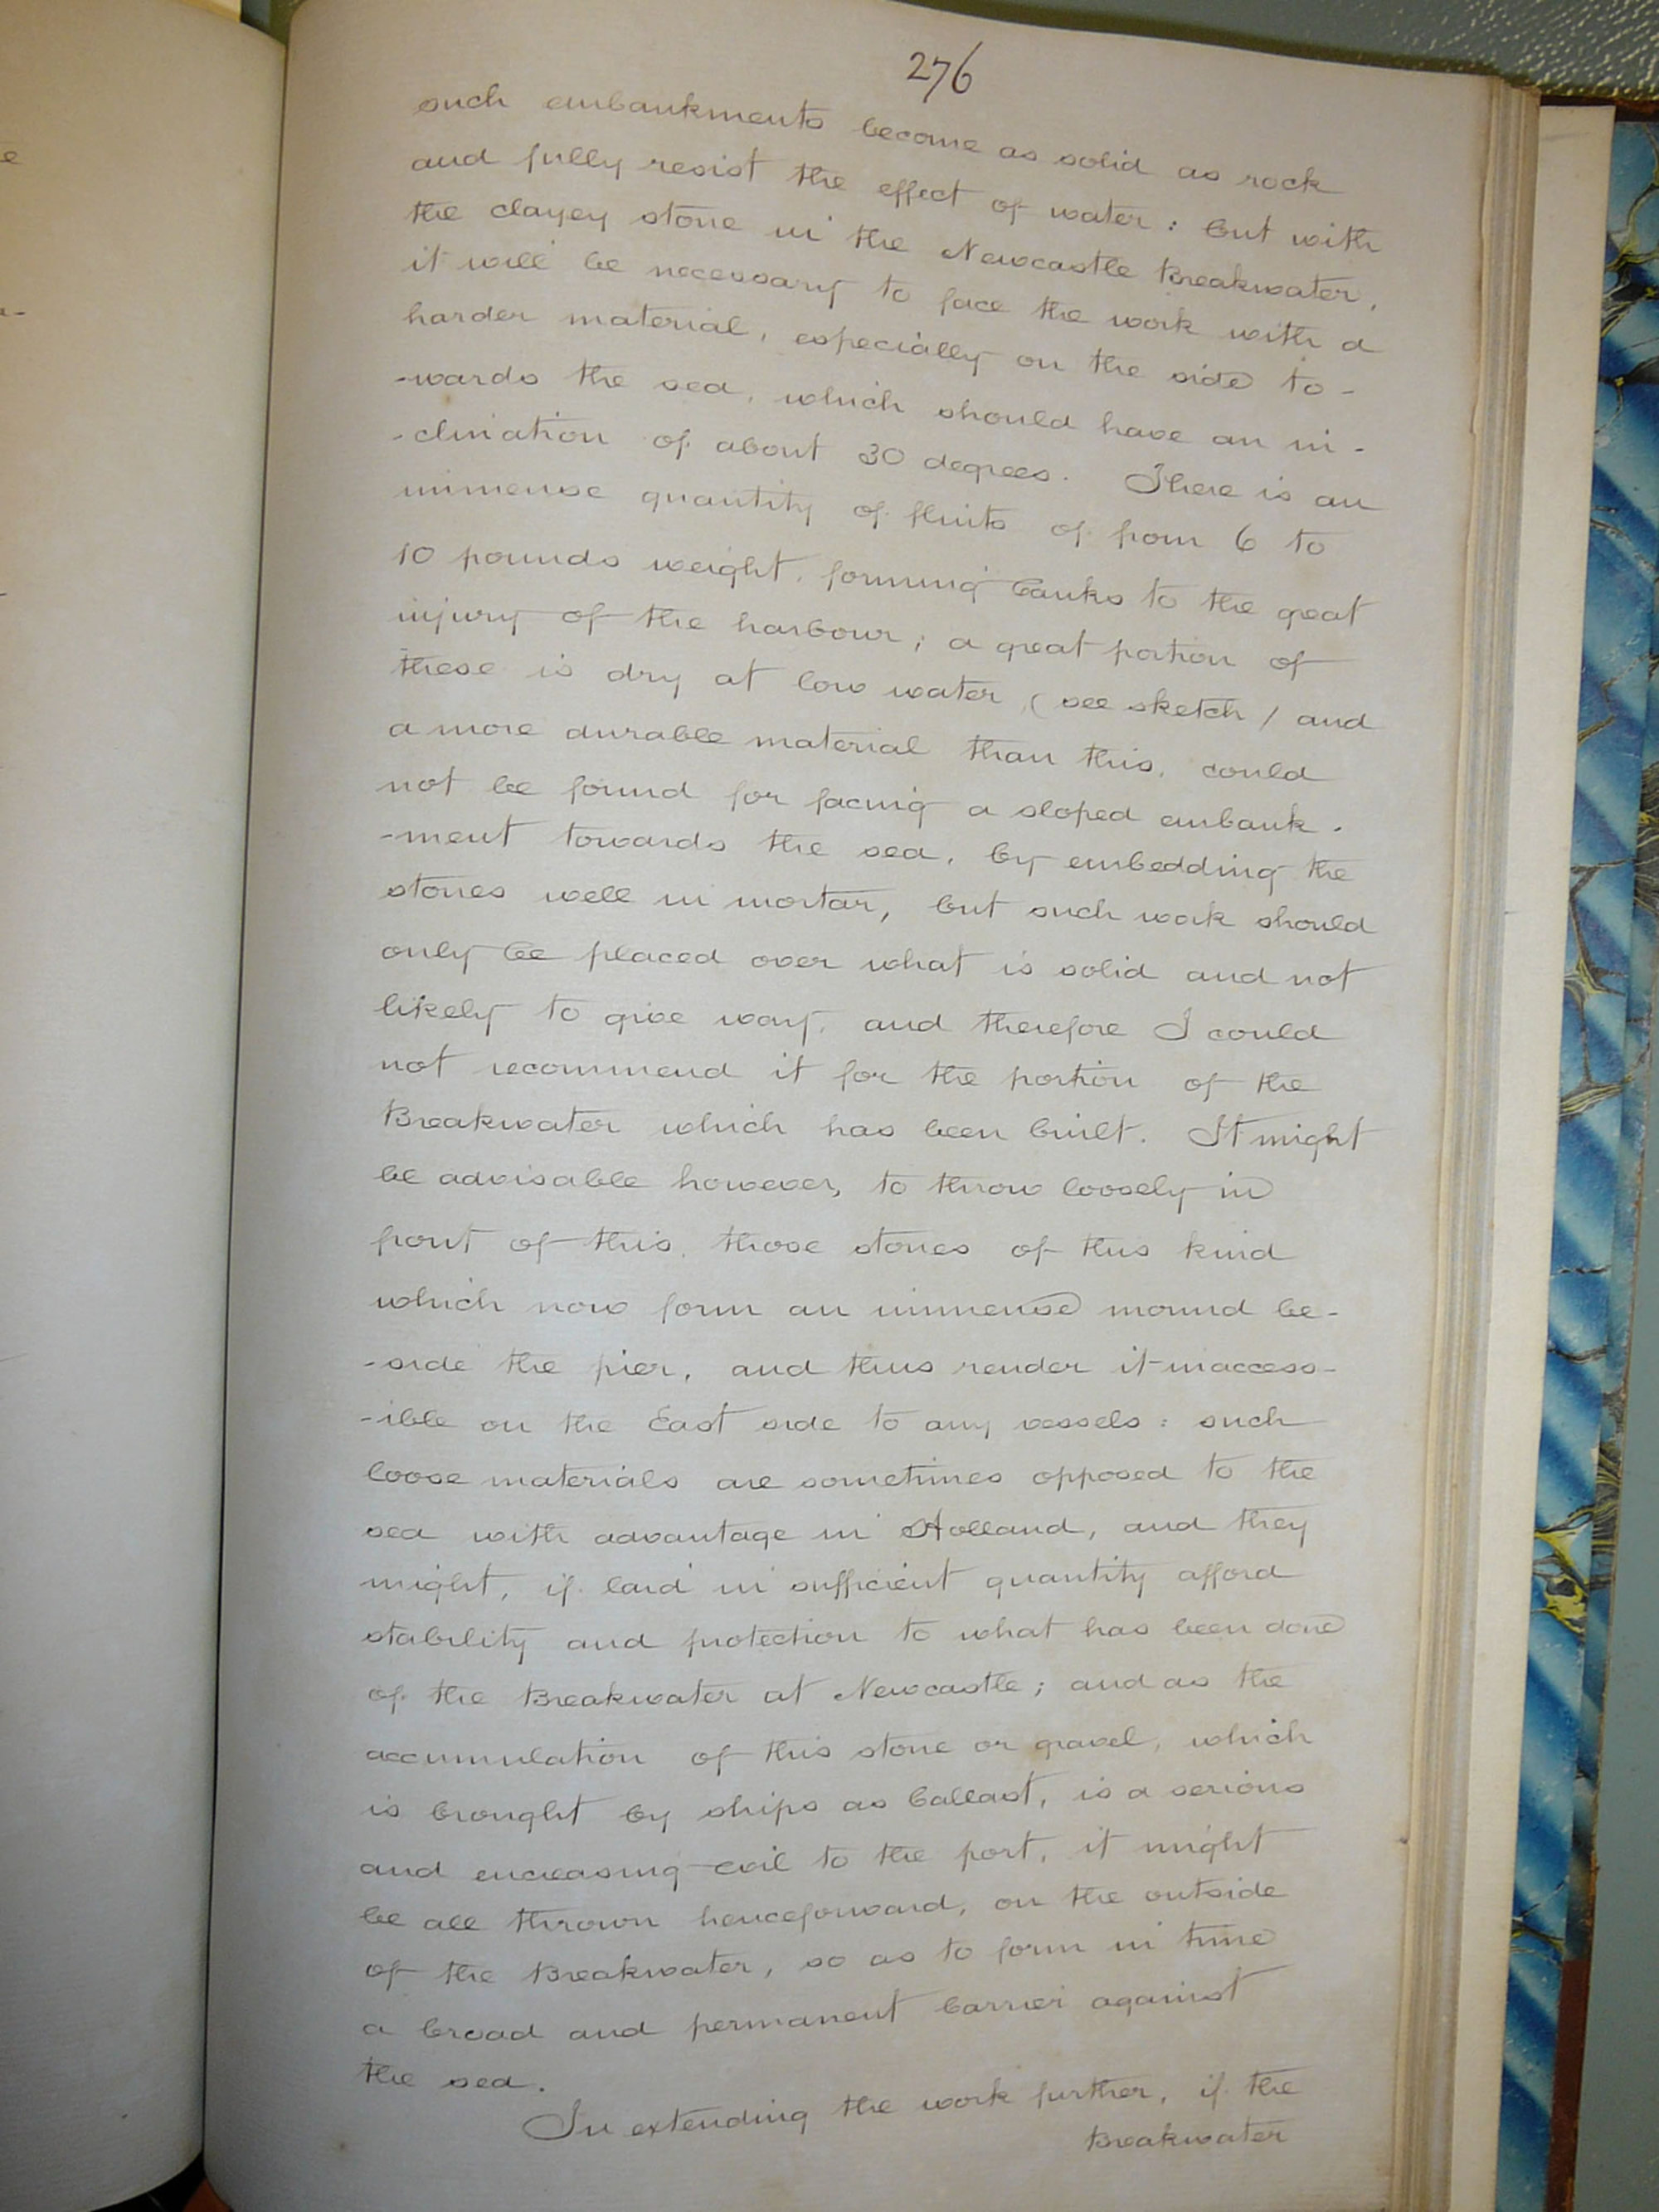 276
such embankments become as solid as rock
and fully resist the effect of water: but with
the clayey stone in the Newcastle Breakwater,
it will be necessary to face the work with a
harder material, especially on the side to-
-wards the sea, which should have an in-
-clination of about 30 degrees. There is an
immense quantity of flints of from 6 to
10 pounds weight, forming banks to the great
injury of the harbour; a great portion of
these is dry at low water, (see sketch) and
a more durable material than this, could
not be found for facing a sloped embank-
-ment towards the sea, by embedding the
stones well in mortar, but such work should
only be placed over what is solid and not
likely to give way, and therefore I could
not recommend it for the portion of the
Breakwater which has been built. It might
be advisable however, to throw loosely in
front of this, those stones of this kind
which now form an immense mound be-
-side the pier, and thus render it inaccess-
-ible on the East side to any vessels: such
loose materials are sometimes opposed to the
sea with advantage in Holland, and they
might, if laid in sufficient quantity afford
stability and protection to what has been done
of the Breakwater at Newcastle; and as the
accumulation of this stone or gravel, which
is brought by ships as ballast, is a serious
and encreasing evil to the port, it might
be all thrown henceforward, on the outside
of the Breakwater, so as to form in time
a broad and permanent barrier against
the sea.
In extending the work further, if the
Breakwater